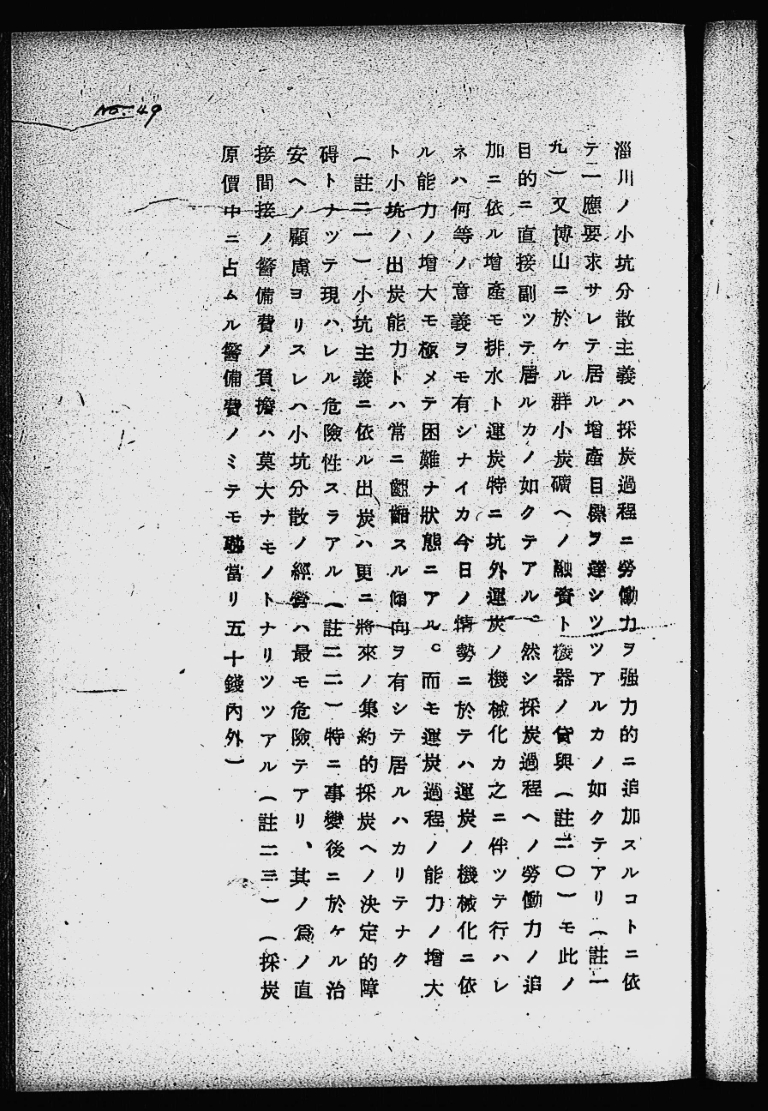 No. 49
淄川ノ小坑分散主義ハ採炭過程ニ勞働力ヲ强力的ニ追加スルコトニ依
テ一應要求サレテ居ル增產目標ヲ達シツツアルカノ如クテアリ（註一
九）又博山ニ於ケル群小炭礦ヘノ融資ト機器ノ貸與（註二〇）モ此ノ
目的ニ直接副ツテ居ルカノ如クテアル。然シ採炭過程ヘノ勞働力ノ追
加ニ依ル增產モ排水ト運炭特ニ坑外運炭ノ機械化カ之ニ伴ツテ行ハレ
ネハ何等ノ意義ヲモ有シナイカ今日ノ情勢ニ於テハ運炭ノ機械化ニ依
ル能力ノ增大モ極メテ困難ナ狀態ニアル。而モ運炭過程ノ能力ノ增大
ト小坑ノ出炭能力トハ常ニ齟齬スル傾向ヲ有シテ居ルハカリテナク
（註二一）小坑主義ニ依ル出炭ハ更ニ將來ノ集約的採炭ヘノ決定的障
碍トナツテ現ハレル危險性スラアル（註二二）特ニ事變後ニ於ケル治
安ヘノ顧慮ヨリスレハ小坑分散ノ經營ハ最モ危險テアリ、其ノ爲ノ直
接間接ノ警備費ノ負擔ハ莫大ナモノトナリツツアル（註二三）（採炭
原價中ニ占ムル警備費ノミテモ瓲當リ五十錢內外）